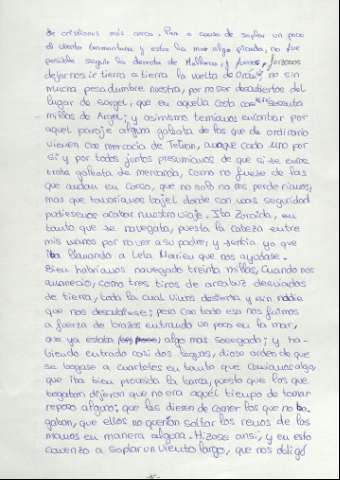 de cristianos más cerca. Pero a causa de soplar un poco
el viento tramontana y estar la mar algo picada, no fue
posible seguir la derrota de Mallorca, y fuenos forzoso
dejarnos ir tierra a tierra la vuelta de Orán, no sin
mucha pesadumbre nuestra, por no ser descubiertos del
lugar de Sargel, que en aquella costa cae sesenta
millas de Argel; y asimismo temíamos encontrar por
aquel paraje alguna galeota de las que de ordinario
vienen con mercacía de Tetuan, aunque cada uno por
sí y por todos juntos presumíamos de que si se encon
traba galeota de mercancía, como no fuese de las
que andan en corso, que no solo no nos perderíamos,
mas que tomaríamos bajel donde con más seguridad
pudiésemos acabar nuestro viaje. Iba Zoraida, en
tanto que se navegaba, puesta la cabeza entre
mis manos por no ver a su padre, y sentía yo que
iba llamando a Lela Marien que nos ayudase.
Bien habríamos navegado treinta millas, cuando nos
amaneció, como tres tiros de arcabuz desviados
de tierra, toda la cual vimos desierta y sin nadie
que nos descubriese; pero con todo eso nos fuimos
a fuerza de brazos entrando un poco en la mar,
que ya estaba algo más sosegado; y ha-
biendo entrado casi dos leguas, diose orden de que
se bogase a cuarteles en tanto que comíamos algo,
que iba bien proveída la barca, puesto que los que
bogaban dijeron que no era aquél tiempo de tomar
reposo alguno; que les diesen de comer los que no bo-
gaban, que ellos no querían soltar los remos de las
manos en manera alguna. Hízose ansí, y en esto
comenzó a soplar un viento largo, que nos obligó